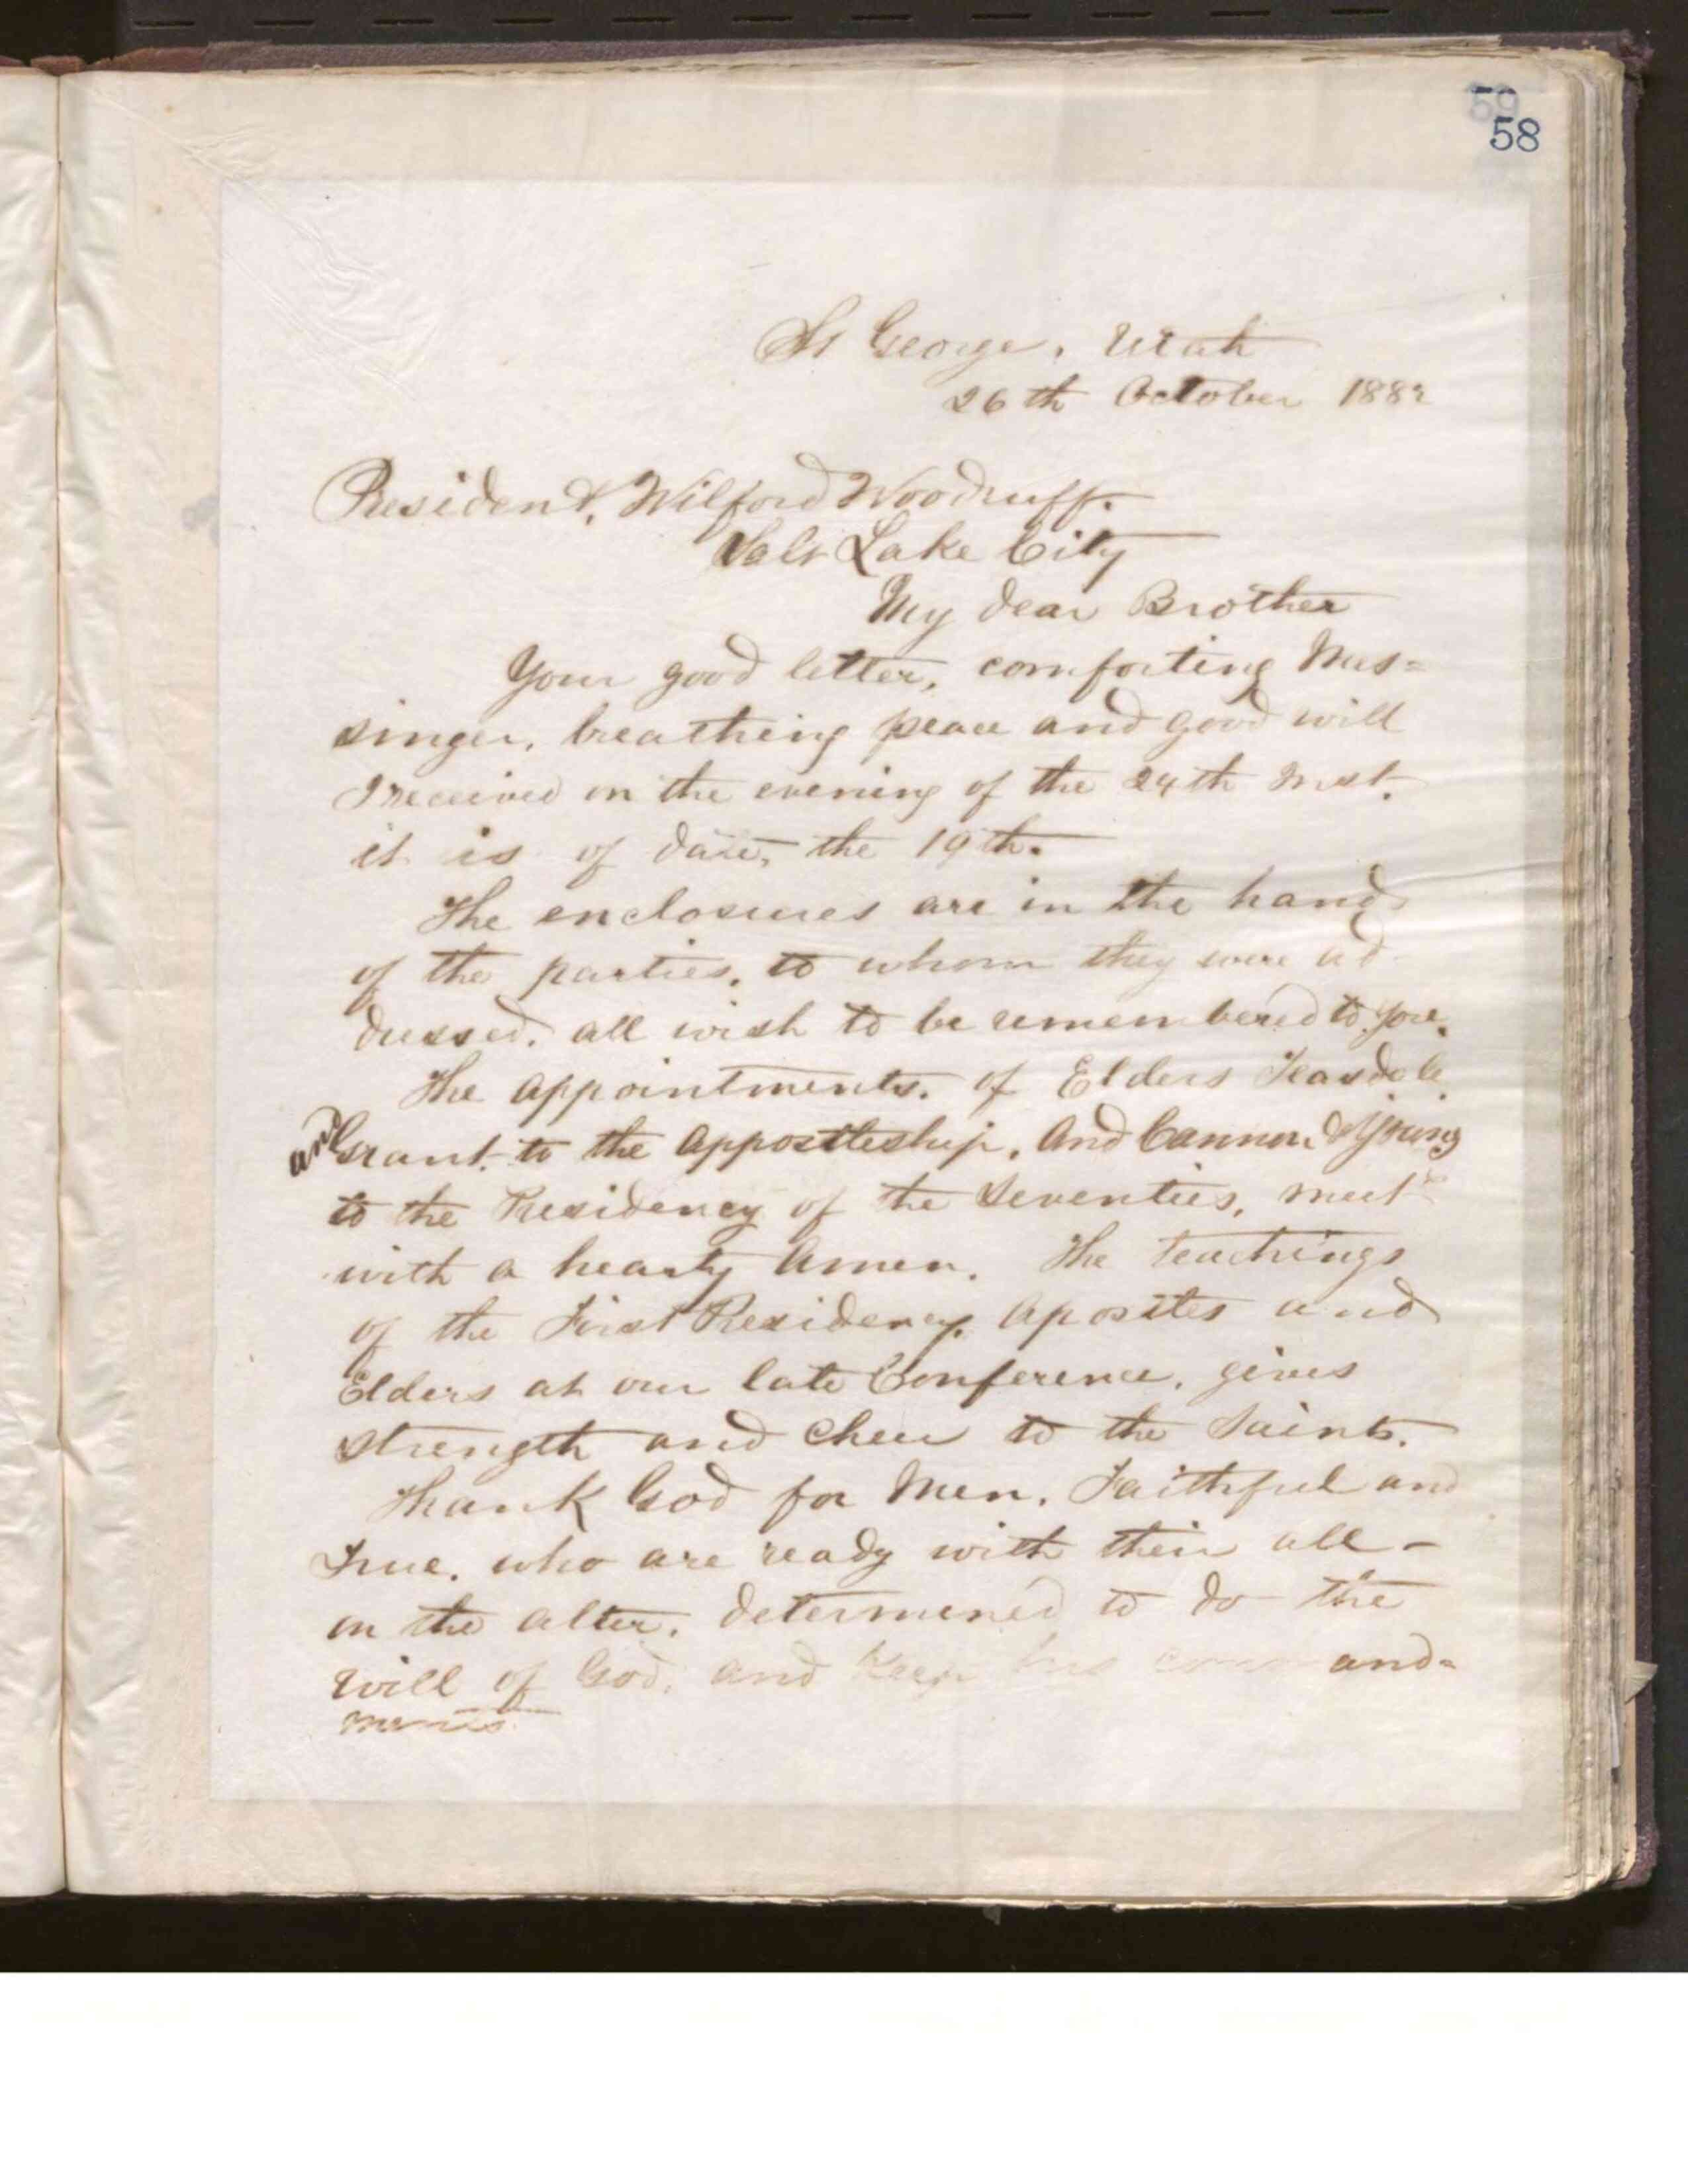 59
58
St George, Utah
26th October 1882
President, Wilford Woodruff.
Salt Lake City
My dear Brother
Your good letter, comforting Mes=
singer, breathing peace and good will
I received on the evening of the 24th Inst.
it is of date, the 19th.
The enclosures are in the hands
of the parties, to whom they were ad-
dressed. all wish to be remembered to you.
The appointments. of Elders Teasdale
and Grant. to the Appostleship, And Cannon & Young
to the Presidency of the Seventies, meet
with a hearty Amen. The teachings
of the First Presidency. Apostles and
Elders at our late Conference, gives
strength and cheer to the Saints.
Thank God for Men, Faithful and
True. who are ready with their all -
on the alter, determined to do the
will of God, and keep his command=
ments.